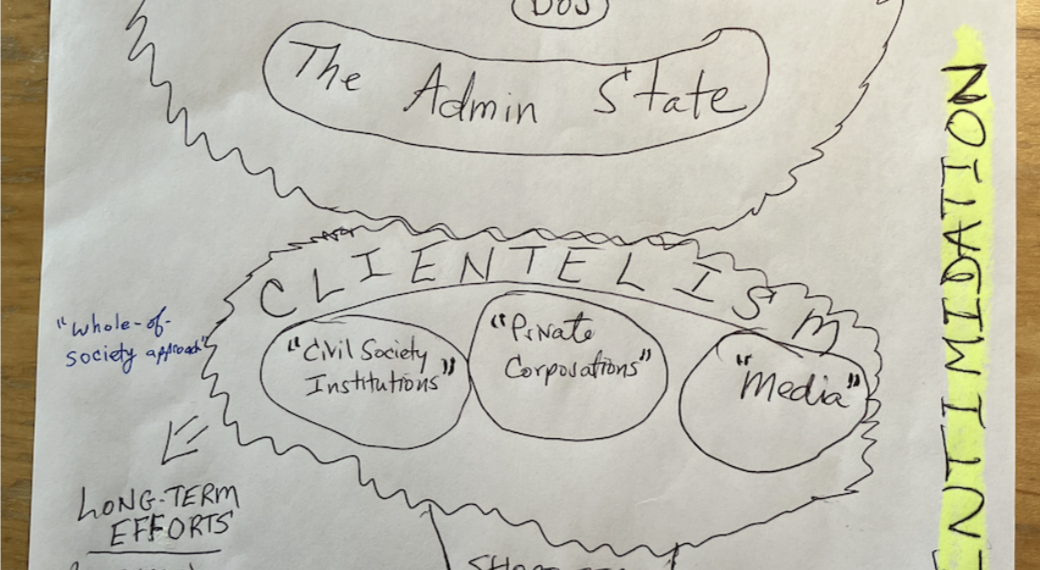 DOJ
The Admin State
CLIENTELISM
"Civil Society
Institutions"
"Private
Corporations"
"Media"
"whole-of-
society approach"
LONG-TERM
EFFORTS
INTIMIDATION